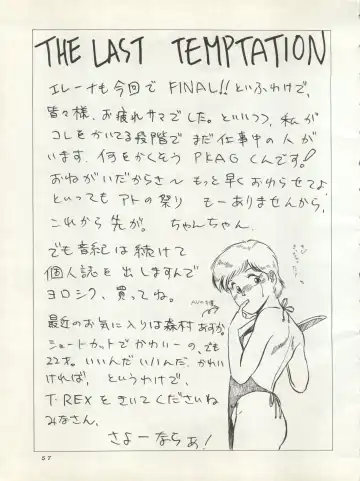 THE LAST TEMPTATION
エレーナも今回でFINAL!!といふわけで、
皆々様、お疲れサマでした。といいつつ、私が
コレをかいてる段階でまだ仕事中の人が
います。何をかくそうPKAGくんです!
おねがいだからさ〜もっと早くおわらせてよ
といってもアトの祭り もーありませんから、
これから先が。ちゃんちゃん。
でも音紀は続けて
個人誌を出しますんで
ヨロシク、買ってね。
最近のお気に入りは森村あすか。
ショートカットでかわいーの、でも
22才。いいんだいいんだ、かわい
ければ、というわけで、
T・REXをきいてくださいね
みなさん、
さよーならぁ!
57